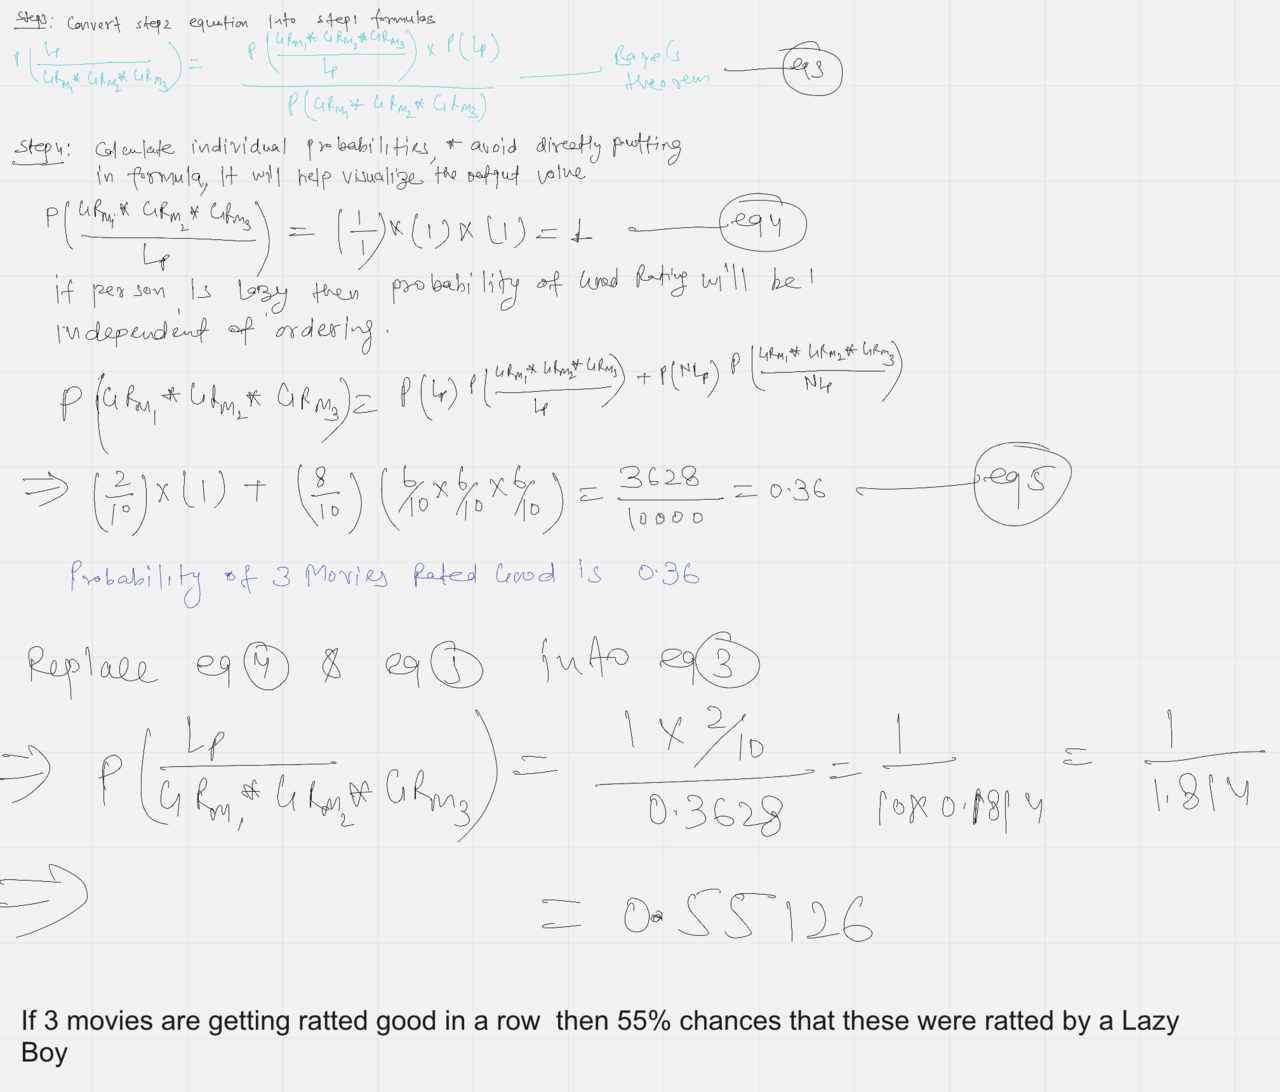 Step3: Convert step2 equation into step1 formulas
P(Lp / GRM1 * GRM2 * GRM3) = P(GRM1 * GRM2 * GRM3 / Lp) x P(Lp) / P(GRM1 * GRM2 * GRM3) Baye's theorem eq3
Step4: Calculate individual probabilities, * avoid directly putting
in formula, It will help visualize the output value
P(GRM1 * GRM2 * GRM3 / Lp) = (1/1) x (1) x (1) = 1 eq4
if person is lazy then probability of Good Rating will be 1
independent of ordering.
P(GRM1 * GRM2 * GRM3) = P(Lp) P(GRM1 * GRM2 * GRM3 / Lp) + P(NLp) P(GRM1 * GRM2 * GRM3 / NLp)
⇒ (2/10) x (1) + (8/10) (6/10 x 6/10 x 6/10) = 3628/10000 = 0.36 eq5
Probability of 3 Movies Rated Good is 0.36
Replace eq 4 & eq 5 into eq 3
⇒ P(Lp / GRM1 * GRM2 * GRM3) = 1 x 2/10 / 0.3628 = 1 / 10x0.1814 = 1 / 1.814
⇒ = 0.55126
If 3 movies are getting ratted good in a row then 55% chances that these were ratted by a Lazy
Boy